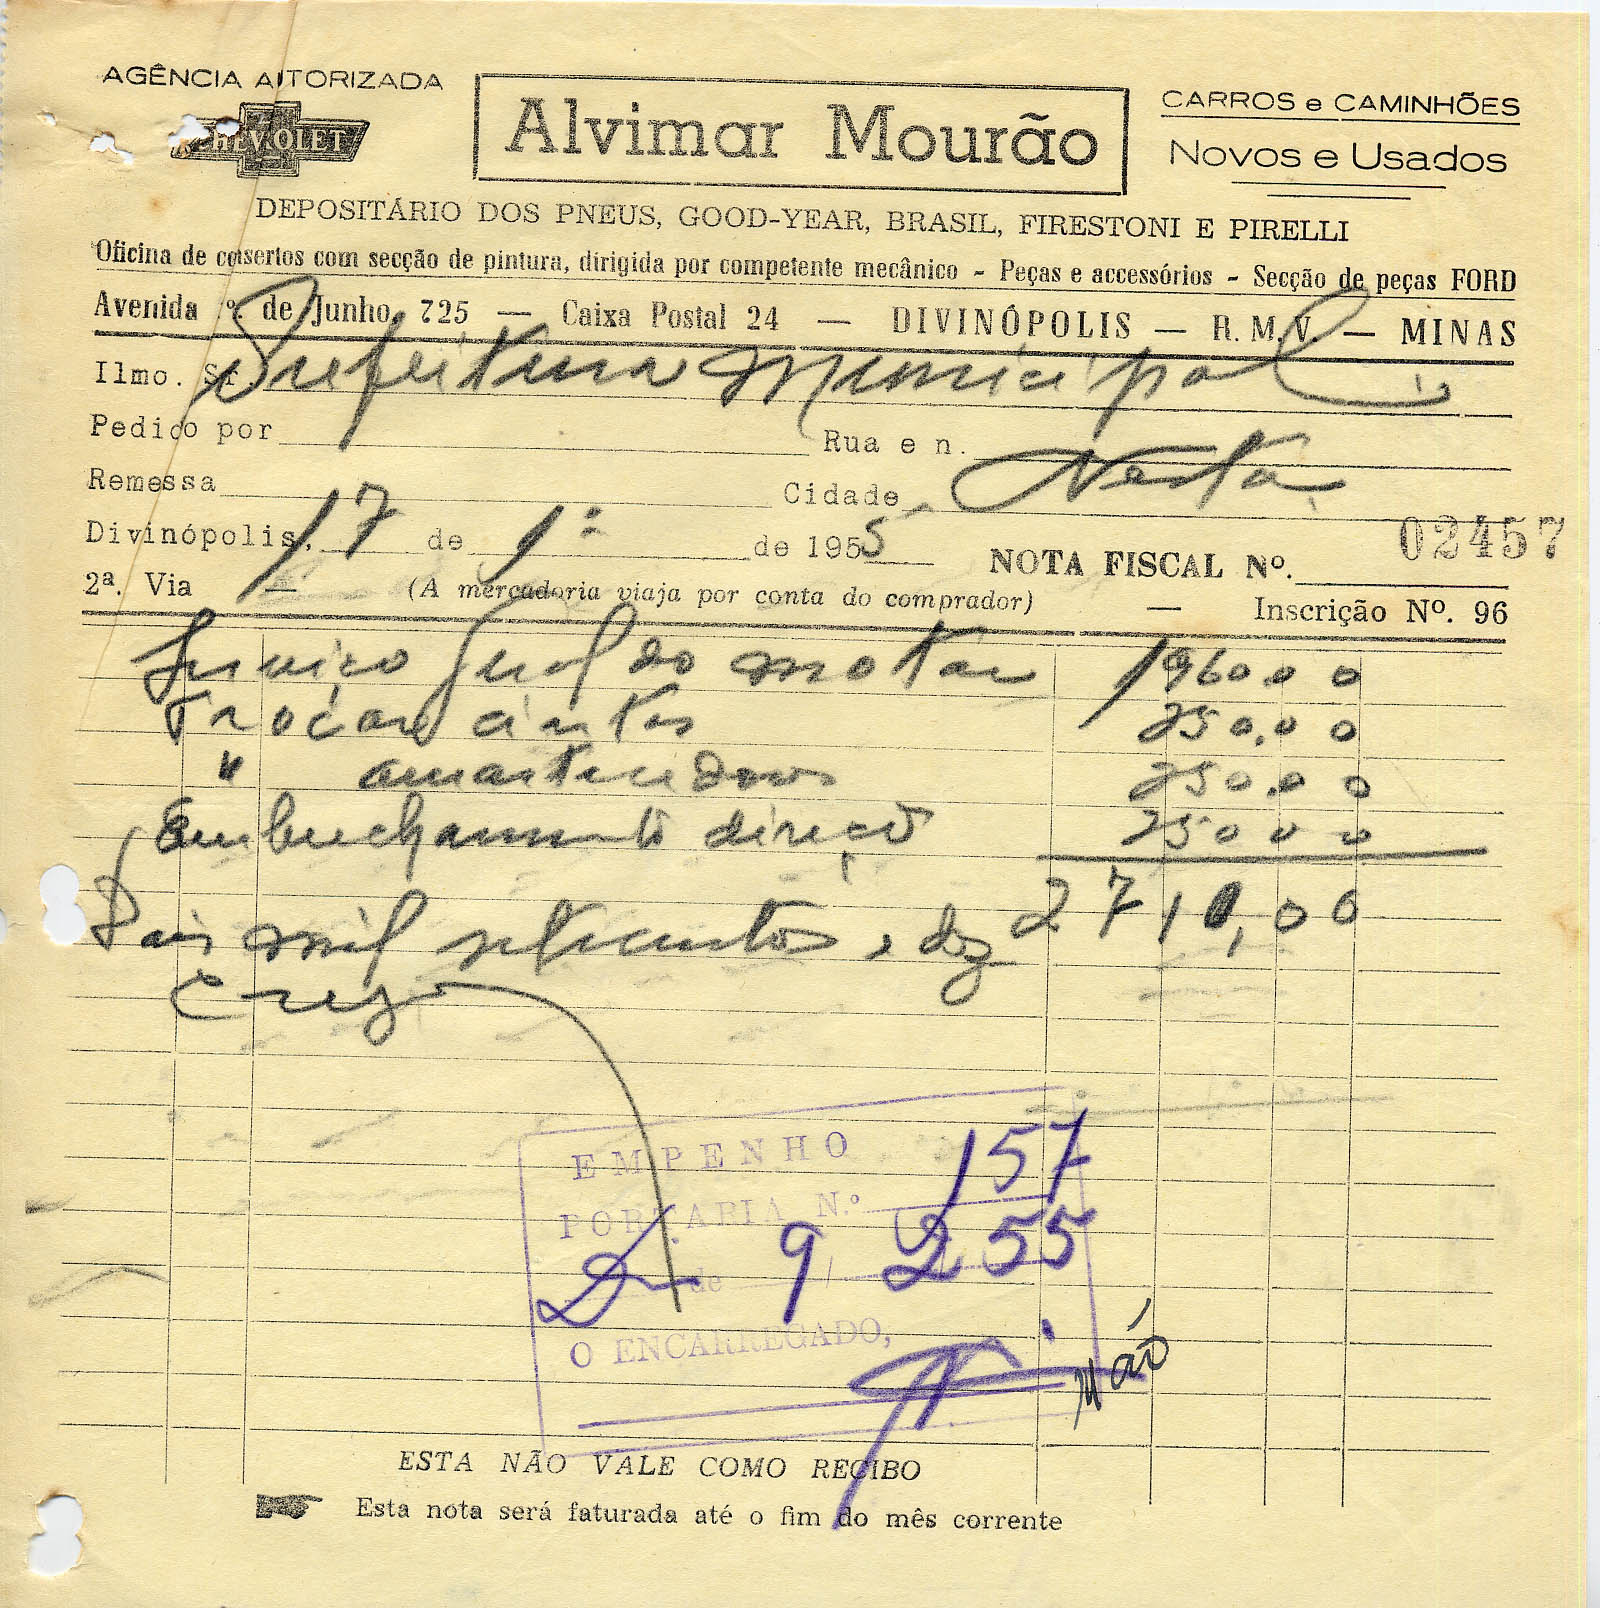 AGÊNCIA AUTORIZADA
CHEVROLET
Alvimar Mourão
CARROS e CAMINHÕES
Novos e Usados
DEPOSITÁRIO DOS PNEUS, GOOD-YEAR, BRASIL, FIRESTONI E PIRELLI
Oficina de consertos com secção de pintura, dirigida por competente mecânico - Peças e accessórios - Secção de peças FORD
Avenida 1º. de Junho, 725 — Caixa Postal 24 — DIVINÓPOLIS — R. M. V. — MINAS
Ilmo. Sr. Prefeitura Municipal
Pedido por Rua e n.
Remessa Cidade Nesta
Divinópolis, 17 de 1º de 1955 NOTA FISCAL Nº. 02457
2ª. Via — (A mercadoria viaja por conta do comprador) — Inscrição Nº. 96
Serviço Geral do motor 1960,00
Trocar cintas 250,00
" amortecedores 250,00
Embuchamento direção 250,00
2710,00
Dois mil setecentos e dez
Cruz
EMPENHO
PORTARIA N.º 157
D de 9 / 2 55
O ENCARREGADO,
ESTA NÃO VALE COMO RECIBO
Esta nota será faturada até o fim do mês corrente